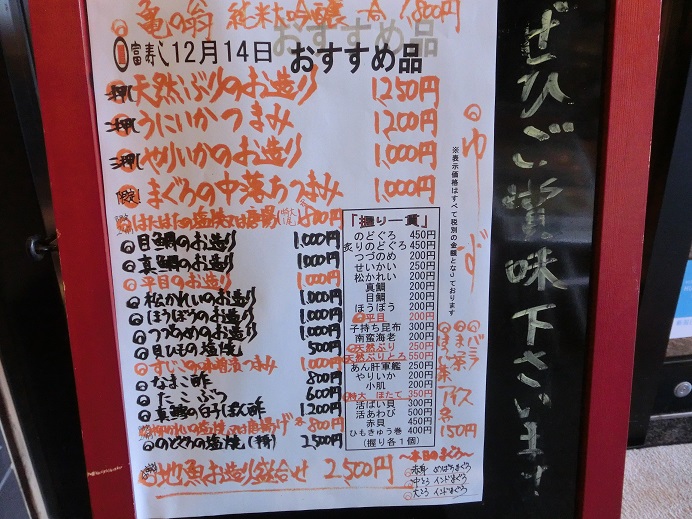 亀の翁 純米大吟醸 一合 1,800円
富寿し 12月14日 おすすめ品
一押し 天然ぶりのお造り 1,250円
二押し うにいかつまみ 1,200円
三押し やりいかのお造り 1,000円
限定 まぐろの中落ちつまみ 1,000円
はたはたの塩焼又は唐揚
目鯛のお造り 1,000円
真鯛のお造り 1,000円
平目のお造り 1,000円
松かれいのお造り 1,000円
ほうぼうのお造り 1,000円
つづのめのお造り 1,000円
貝ひもの塩焼 500円
すじこの味噌漬つまみ 1,000円
なまこ酢 800円
たこぶつ 600円
真鯛の白子ぽん酢 1,200円
柳かれいの塩焼又は唐揚げ 800円
のどぐろの塩焼(特) 2,500円
地魚お造り盛合せ 2,500円
「握り一貫」
のどぐろ 450円
炙りのどぐろ 450円
つづのめ 200円
せいかい 250円
松かれい 200円
真鯛 200円
目鯛 200円
ほうぼう 200円
平目 200円
子持ち昆布 300円
南蛮海老 200円
天然ぶり 250円
天然ぶりとろ 550円
あん肝軍艦 250円
やりいか 200円
小肌 200円
特大 ほたて 350円
活ばい貝 300円
活あわび 500円
赤貝 450円
ひもきゅう巻 400円
(握り各1個)
～本日のまぐろ～
赤身 めばちまぐろ
中とろ インドまぐろ
大とろ インドまぐろ
※表示価格はすべて税別の金額となっております
ゆず
バニラ
まっ茶
ほうじ茶
アイス
各150円
ぜひご賞味下さいませ!